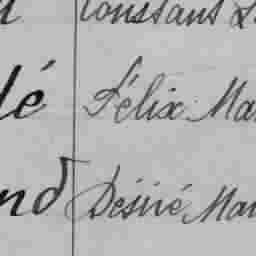 Constant
lé Félix Mar
nd Désiré Mar